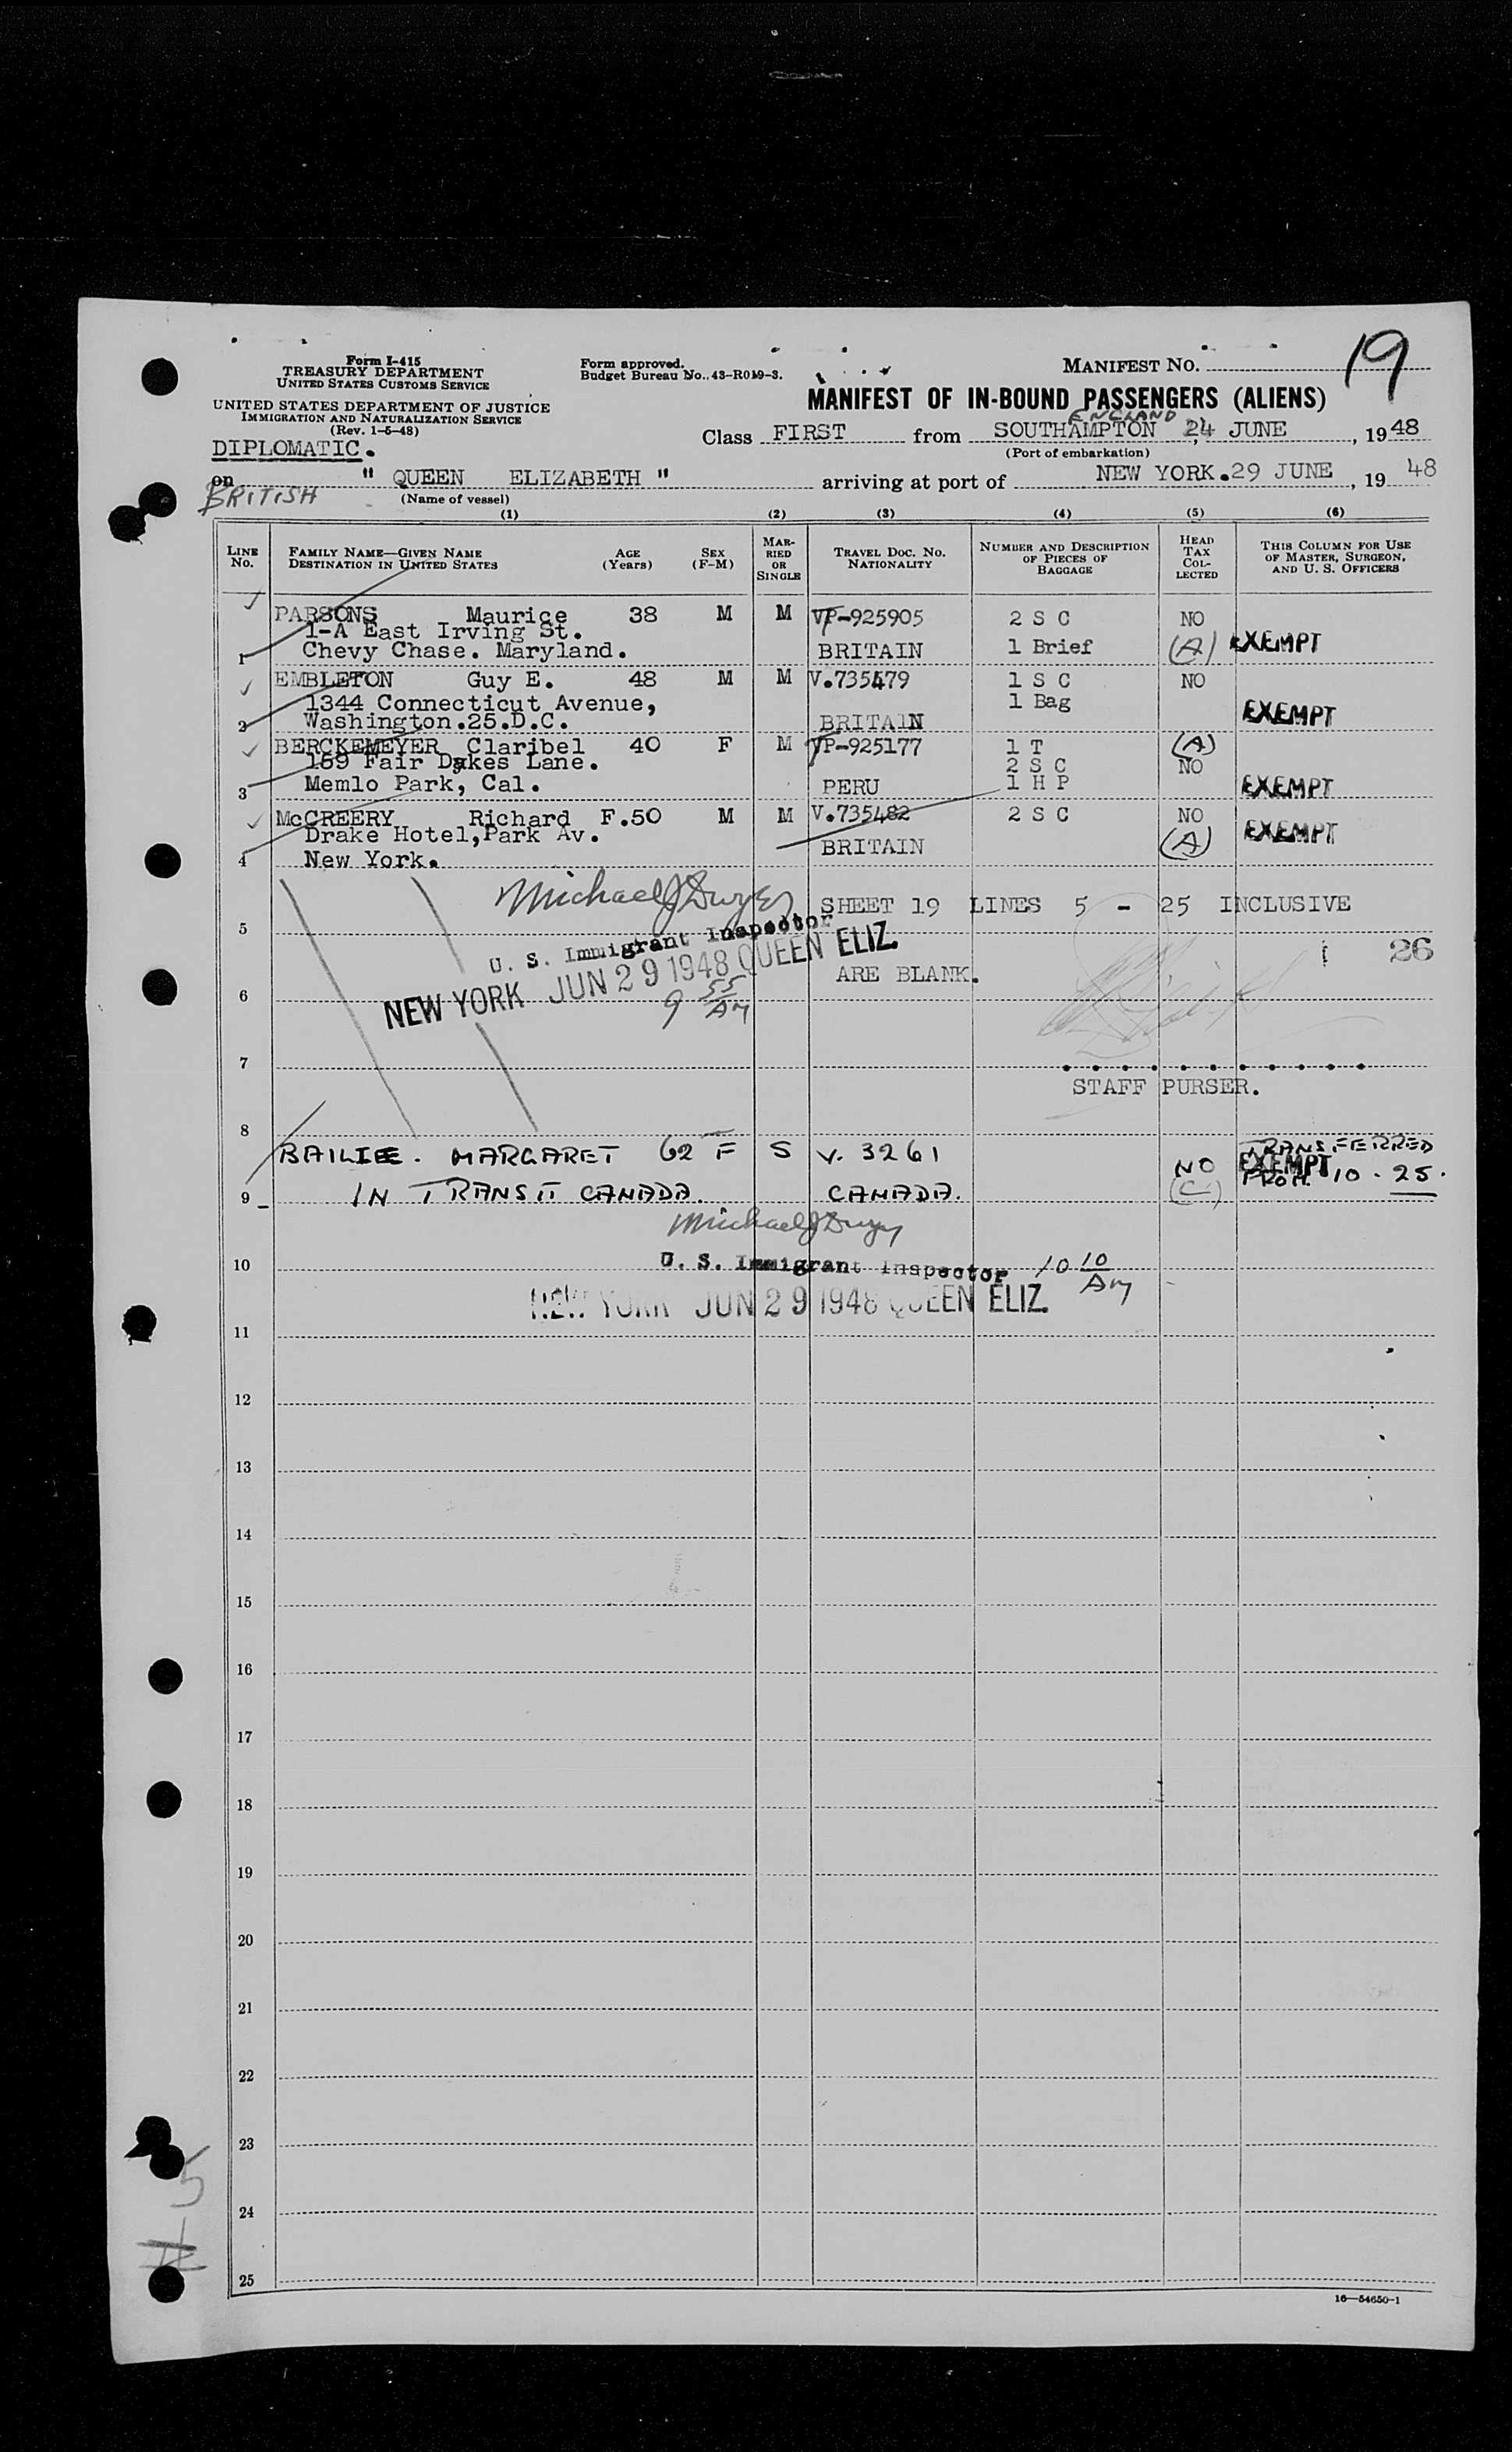 Form I-415
TREASURY DEPARTMENT
UNITED STATES CUSTOMS SERVICE
UNITED STATES DEPARTMENT OF JUSTICE
IMMIGRATION AND NATURALIZATION SERVICE
(Rev. 1-5-48)
Form approved.
Budget Bureau No. 43-R019-3.
MANIFEST NO. 19
MANIFEST OF IN-BOUND PASSENGERS (ALIENS)
ENGLAND
Class FIRST from SOUTHAMPTON 24 JUNE, 1948
(Port of embarkation)
DIPLOMATIC.
on " QUEEN ELIZABETH " arriving at port of NEW YORK.29 JUNE, 19 48
BRITISH
(Name of vessel)
(1) (2) (3) (4) (5) (6)
LINE NO. FAMILY NAME—GIVEN NAME DESTINATION IN UNITED STATES AGE (Years) SEX (F-M) MARRIED OR SINGLE TRAVEL DOC. NO. NATIONALITY NUMBER AND DESCRIPTION OF PIECES OF BAGGAGE HEAD TAX COLLECTED THIS COLUMN FOR USE OF MASTER, SURGEON, AND U. S. OFFICERS
PARSONS Maurice 38 M M VP-925905 2 S C NO
1-A East Irving St.
1 Chevy Chase. Maryland. BRITAIN 1 Brief (A) EXEMPT
EMBLETON Guy E. 48 M M V.735479 1 S C NO
1344 Connecticut Avenue, 1 Bag
2 Washington.25.D.C. BRITAIN EXEMPT
BERCKEMEYER Claribel 40 F M VP-925177 1 T (A)
159 Fair Oakes Lane. 2 S C NO
3 Memlo Park, Cal. PERU 1 H P EXEMPT
McCREERY Richard F.50 M M V.735482 2 S C NO
Drake Hotel,Park Av. EXEMPT
4 New York. BRITAIN (A)
Michael J Dwyer
5 SHEET 19 LINES 5 - 25 INCLUSIVE
U. S. Immigrant Inspector
26
NEW YORK JUN 29 1948 QUEEN ELIZ.
ARE BLANK.
9 55 AM
6
7
STAFF PURSER.
8
BAILIE. MARGARET 62 F S V. 3261 NO TRANSFERRED
EXEMPT
9 IN TRANSIT CANADA. CANADA. (C) FROM 10 - 25.
Michael J Dwyer
10 U. S. Immigrant Inspector 10 10 AM
NEW YORK JUN 29 1948 QUEEN ELIZ.
11
12
13
14
15
16
17
18
19
20
21
22
23
5
24
25
16—54650-1